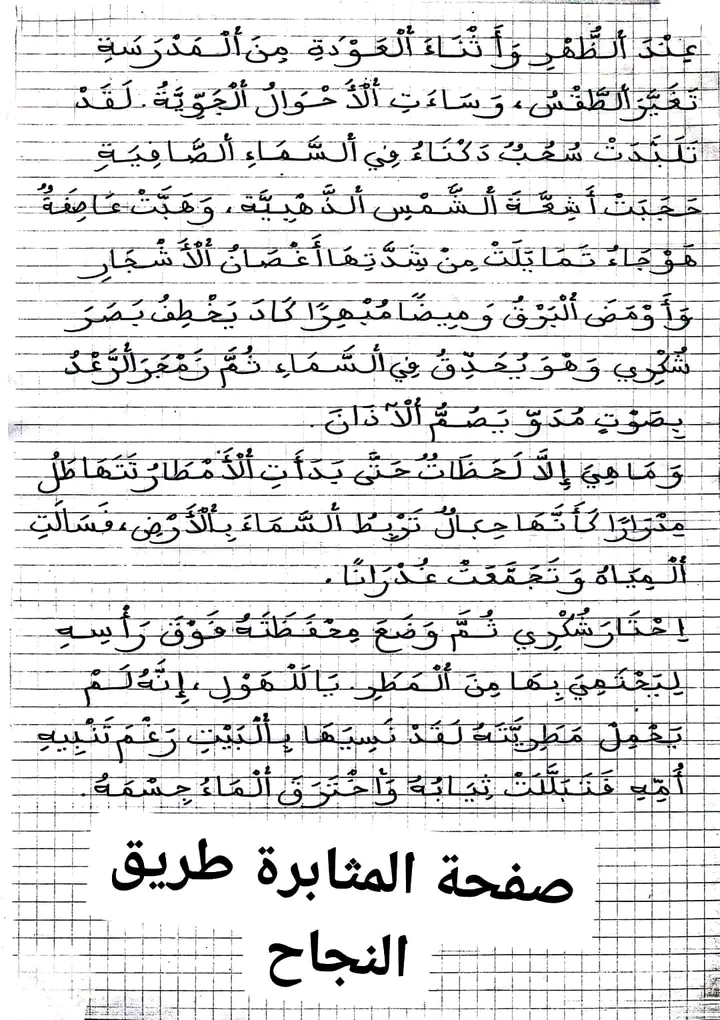 عِنْدَ ٱلظُّهْرِ وَأَثْنَاءَ ٱلْعَوْدَةِ مِنَ ٱلْمَدْرَسَةِ
تَغَيَّرَ ٱلطَّقْسُ، وَسَاءَتِ ٱلْأَحْوَالُ ٱلْجَوِّيَّةُ. لَقَدْ
تَلَبَّدَتْ سُحُبٌ دَكْنَاءُ فِي ٱلسَّمَاءِ ٱلصَّافِيَةِ
حَجَبَتْ أَشِعَّةَ ٱلشَّمْسِ ٱلذَّهَبِيَّة، وَهَبَّتْ عَاصِفَةٌ
هَوْجَاءُ تَمَايَلَتْ مِنْ شِدَّتِهَا أَغْصَانُ ٱلْأَشْجَارِ
وَأَوْمَضَ ٱلْبَرْقُ وَمِيضًا مُبْهِرًا كَادَ يَخْطِفُ بَصَرَ
شُكْرِي وَهْوَ يُحَدِّقُ فِي ٱلسَّمَاءِ ثُمَّ زَمْجَرَ ٱلرَّعْدُ
بِصَوْتٍ مُدَوٍّ يَصُمُّ ٱلْآذَانَ.
وَمَا هِيَ إِلَّا لَحَظَاتٌ حَتَّى بَدَأَتِ ٱلْأَمْطَارُ تَتَهَاطَلُ
مِدْرَارًا كَأَنَّهَا حِبَالٌ تَرْبِطُ ٱلسَّمَاءَ بِٱلْأَرْضِ، فَسَالَتِ
ٱلْمِيَاهُ وَتَجَمَّعَتْ غُدْرَانًا.
اِحْتَارَ شُكْرِي ثُمَّ وَضَعَ مِحْفَظَتَهُ فَوْقَ رَأْسِهِ
لِيَحْتَمِيَ بِهَا مِنَ ٱلْمَطَرِ. يَا لَلْهَوْلِ، إِنَّهُ لَمْ
يَحْمِلْ مَطَرِيَّتَهُ لَقَدْ نَسِيَهَا بِٱلْبَيْتِ رَغْمَ تَنْبِيهِ
أُمِّهِ فَتَبَلَّلَتْ ثِيَابُهُ وَٱخْتَرَقَ ٱلْمَاءُ جِسْمَهُ.
صفحة المثابرة طريق
النجاح